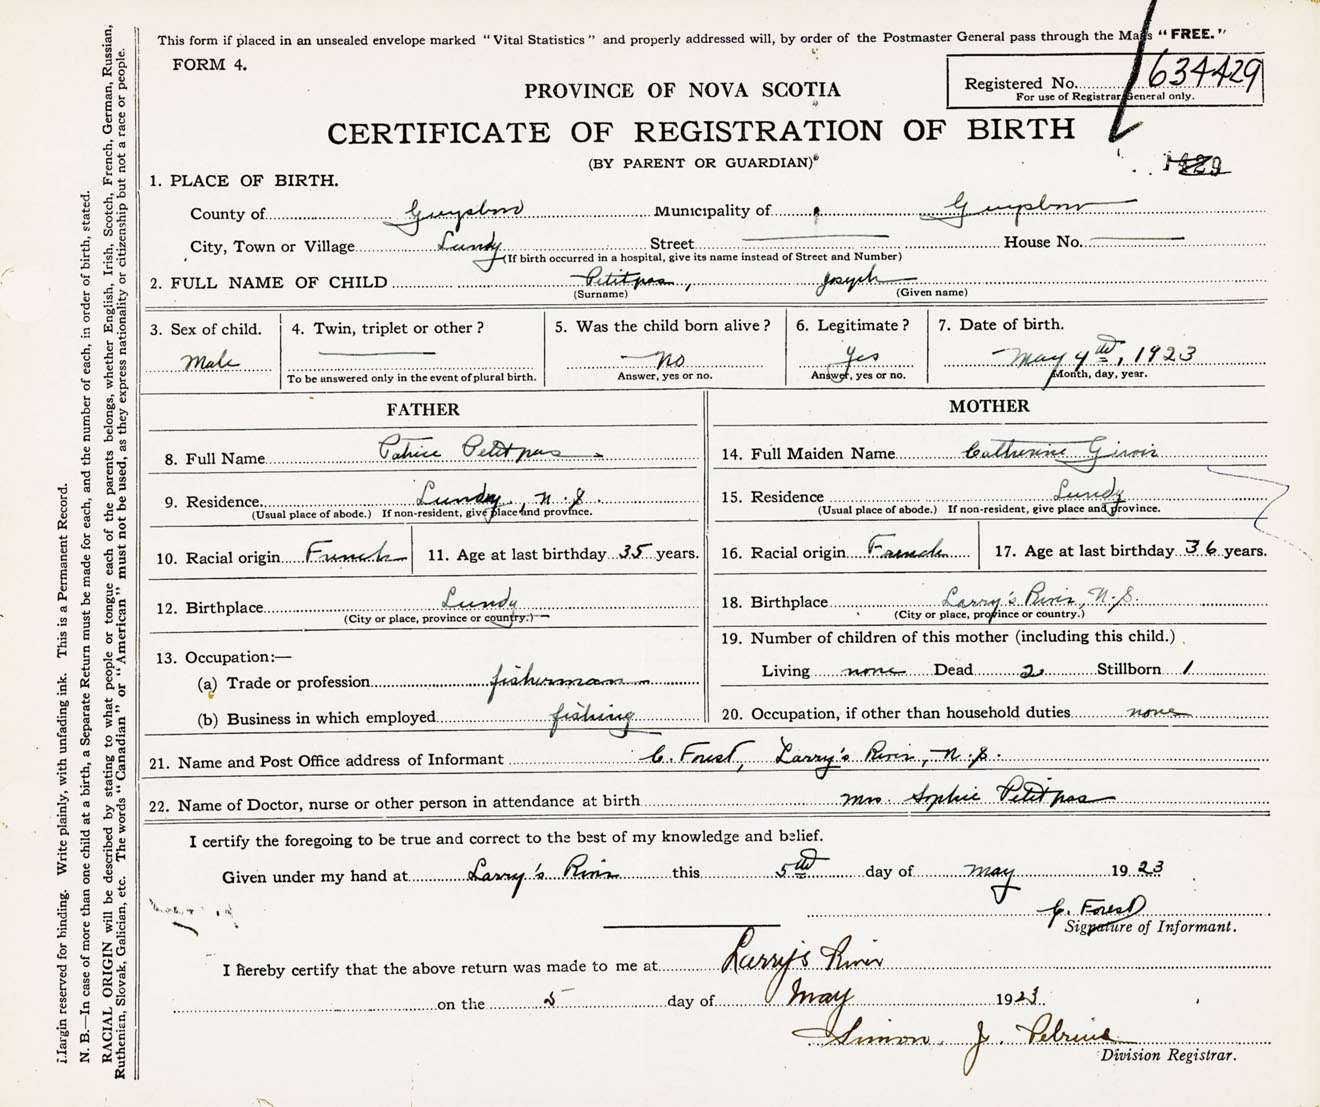 This form if placed in an unsealed envelope marked "Vital Statistics" and properly addressed will, by order of the Postmaster General pass through the Mails "FREE."
FORM 4.
Registered No. 634429
For use of Registrar General only.
PROVINCE OF NOVA SCOTIA
CERTIFICATE OF REGISTRATION OF BIRTH
(BY PARENT OR GUARDIAN)
1. PLACE OF BIRTH.
County of Guysboro Municipality of Guysboro
City, Town or Village Lundy Street House No.
(If birth occurred in a hospital, give its name instead of Street and Number)
2. FULL NAME OF CHILD Petitpas, Joseph
(Surname) (Given name)
3. Sex of child. 4. Twin, triplet or other? 5. Was the child born alive? 6. Legitimate? 7. Date of birth.
Male No Yes May 4th, 1923
To be answered only in the event of plural birth. Answer, yes or no. Answer, yes or no. Month, day, year.
FATHER
8. Full Name Patrice Petitpas
9. Residence. Lundy, N.S.
(Usual place of abode.) If non-resident, give place and province.
10. Racial origin French 11. Age at last birthday 35 years.
12. Birthplace Lundy
(City or place, province or country.)
13. Occupation:—
(a) Trade or profession fisherman
(b) Business in which employed fishing
MOTHER
14. Full Maiden Name Catherine Girroir
15. Residence Lundy
(Usual place of abode.) If non-resident, give place and province.
16. Racial origin French 17. Age at last birthday 36 years.
18. Birthplace Larry's River, N.S.
(City or place, province or country.)
19. Number of children of this mother (including this child.)
Living none Dead 2 Stillborn 1
20. Occupation, if other than household duties none
21. Name and Post Office address of Informant C. Forest, Larry's River, N.S.
22. Name of Doctor, nurse or other person in attendance at birth Mrs. Sophie Petitpas
I certify the foregoing to be true and correct to the best of my knowledge and belief.
Given under my hand at Larry's River this 5th day of May 1923
C. Forest
Signature of Informant.
I hereby certify that the above return was made to me at Larry's River
on the 5 day of May 1923
Simon J.
Division Registrar.
Margin reserved for binding. Write plainly, with unfading ink. This is a Permanent Record.
N. B.—In case of more than one child at a birth, a Separate Return must be made for each, and the number of each, in order of birth, stated.
RACIAL ORIGIN will be described by stating to what people or tongue each of the parents belongs, whether English, Irish, Scotch, French, German, Russian,
Ruthenian, Slovak, Galician, etc. The words "Canadian" or "American" must not be used, as they express nationality or citizenship but not a race or people.